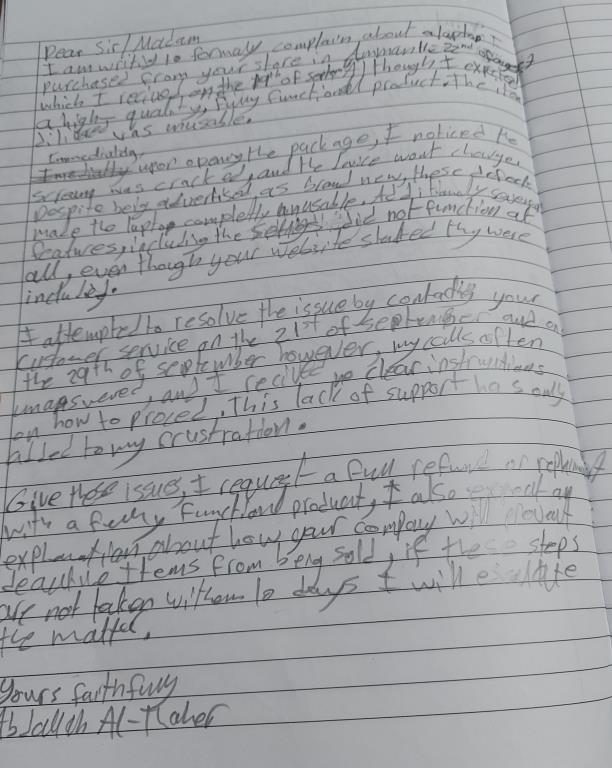 Dear Sir/Madam
I am writid to formaly complain about a laptop I
purchased from your store in Ammanthe 22nd of
which I recived on the 14th of Although I expected
a high quality, fully functional product. The item
was unusable.
Immediatly
upon opening the package, I noticed the
screen was cracked, and the device wont charge.
Despite being advertised as brand new, these defects
made the laptop completly unusable. Additionaly several
features, including the did not function at
all, even though your website stated they were
included.
I attempted to resolve the issue by contacting your
customer service on the 21st of september and on
the 29th of september however, my calls often
unanswered, and I recived no clear instructions
on how to proced. This lack of support has only
added to my frustration.
Give those issues, I request a full refund or replacment
with a fully functional product, I also expect an
explenation about how your company will prevent
items from being sold, if these steps
are not taken within 10 days I will escalate
the matter.
Yours faithfully
Abdallah Al-Taher